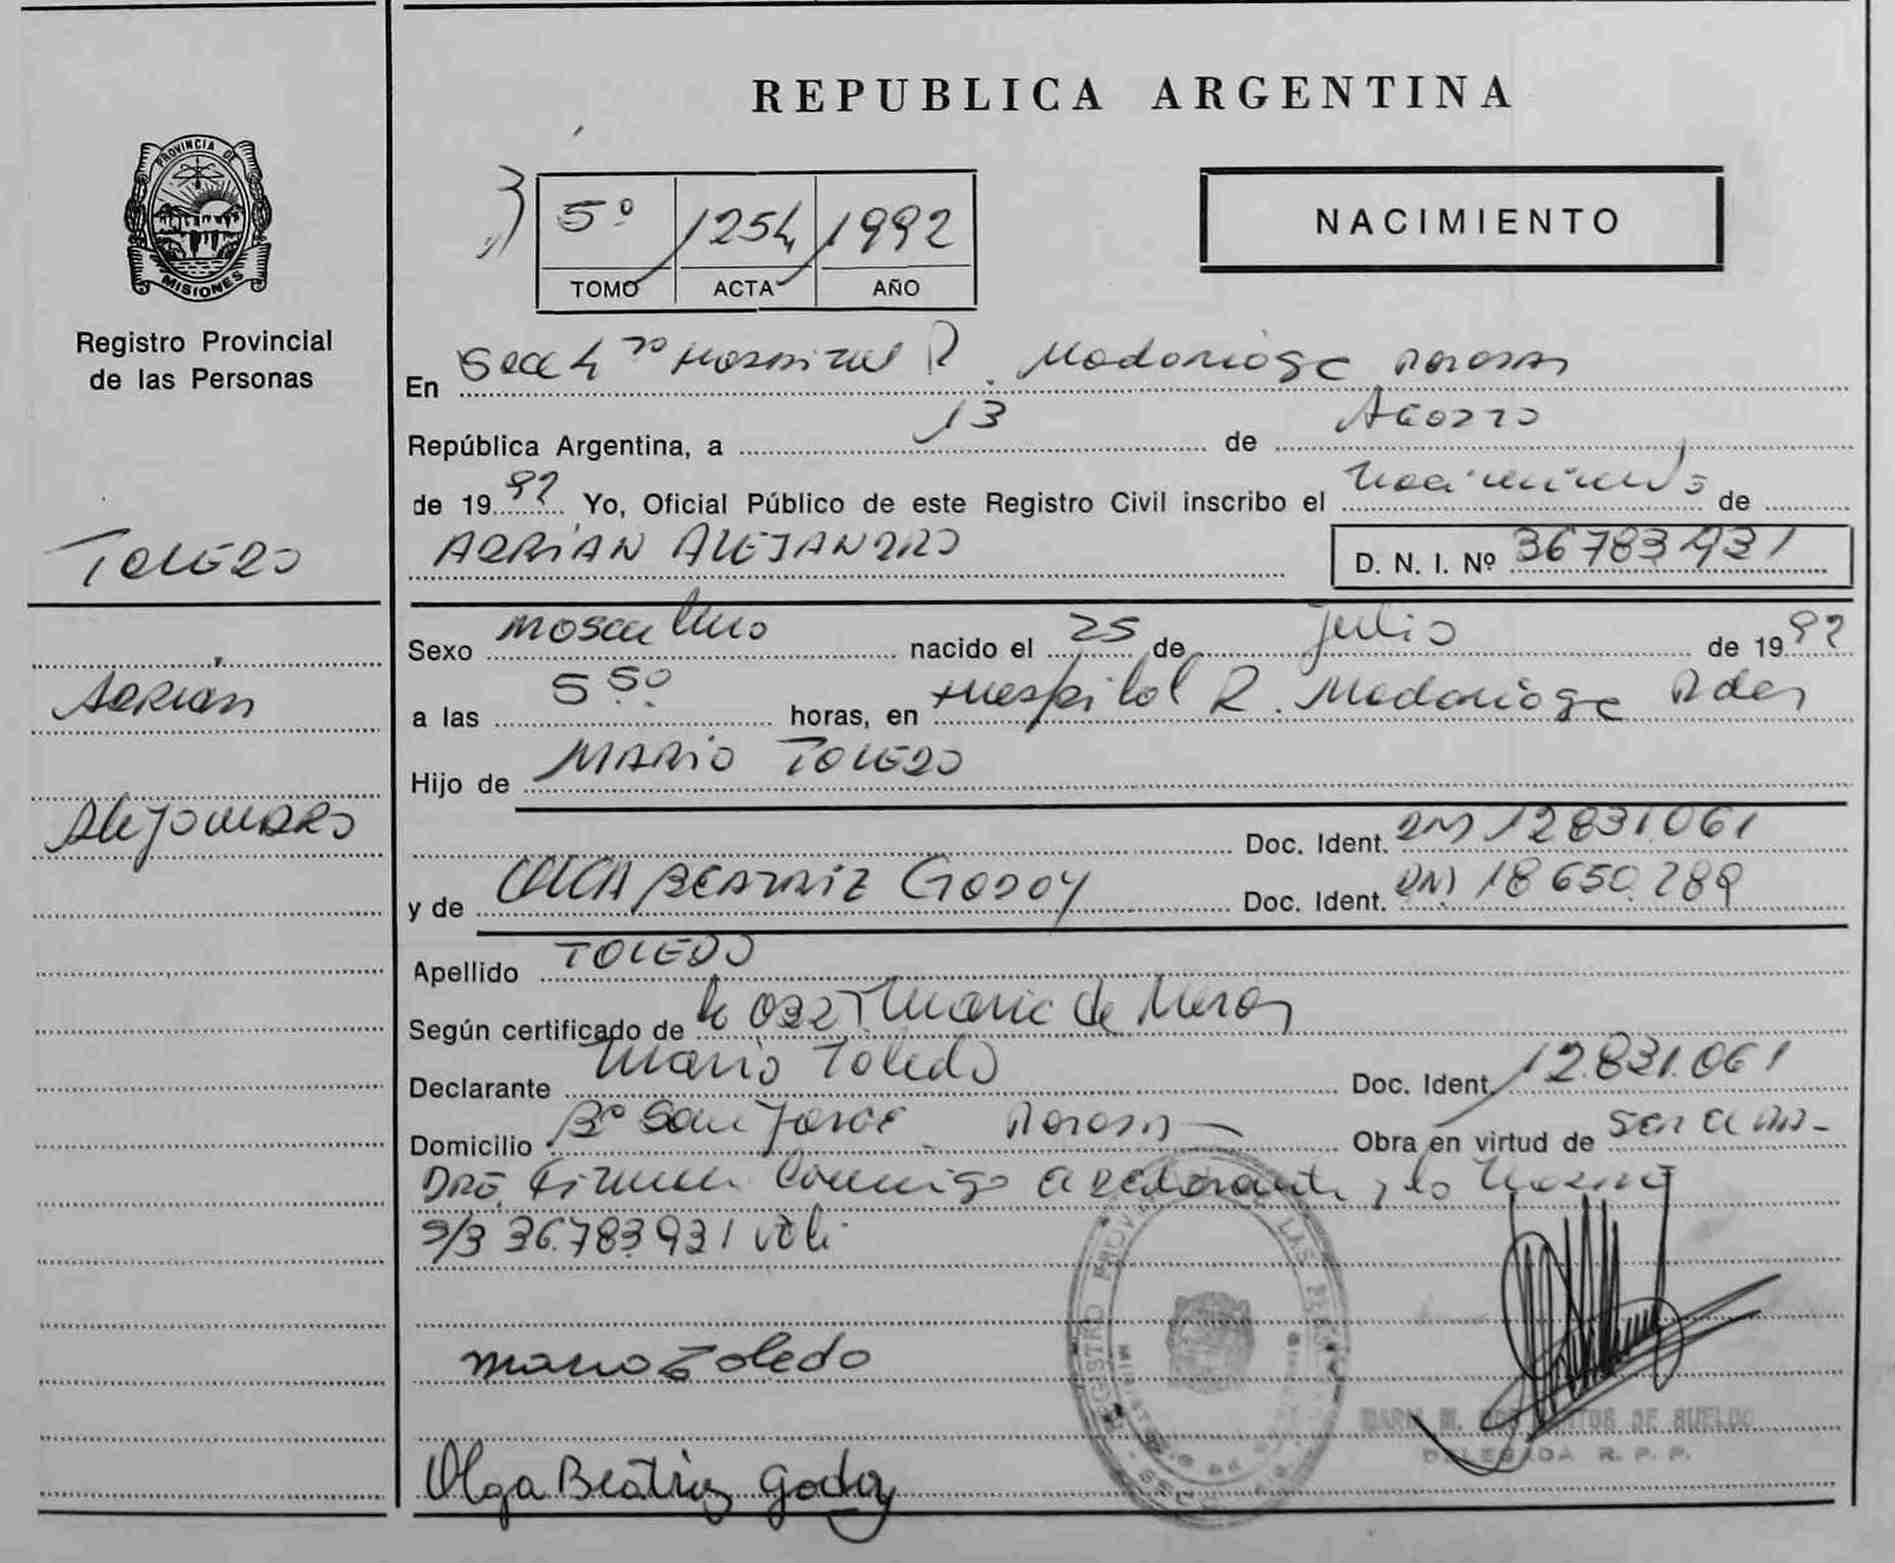 REPUBLICA ARGENTINA
PROVINCIA DE
MISIONES
Registro Provincial
de las Personas
5º 1254 1992
TOMO ACTA AÑO
NACIMIENTO
En Secc 4 Hospital R. Madariaga Posadas
República Argentina, a 13 de Agosto
de 1992 Yo, Oficial Público de este Registro Civil inscribo el nacimiento de
TOLEDO
ADRIAN ALEJANDRO
D. N. I. Nº 36783931
Sexo masculino nacido el 25 de julio de 1992
Adrian
a las 5.50 horas, en Hospital R. Madariaga Pdas
Hijo de MARIO TOLEDO
Alejandro
Doc. Ident. DNI 12831.061
y de OLGA BEATRIZ GODOY Doc. Ident. DNI 18650.289
Apellido TOLEDO
Según certificado de Maria de
Declarante Mario Toledo Doc. Ident. 12.831.061
Domicilio Bº San Jorge Posadas Obra en virtud de ser el pa-
dre. Firman conmigo el declarante y la
36.783.931
Mario Toledo
REGISTRO LAS
DE RUELDO
DELEGADA R. P. P.
Olga Beatriz Godoy